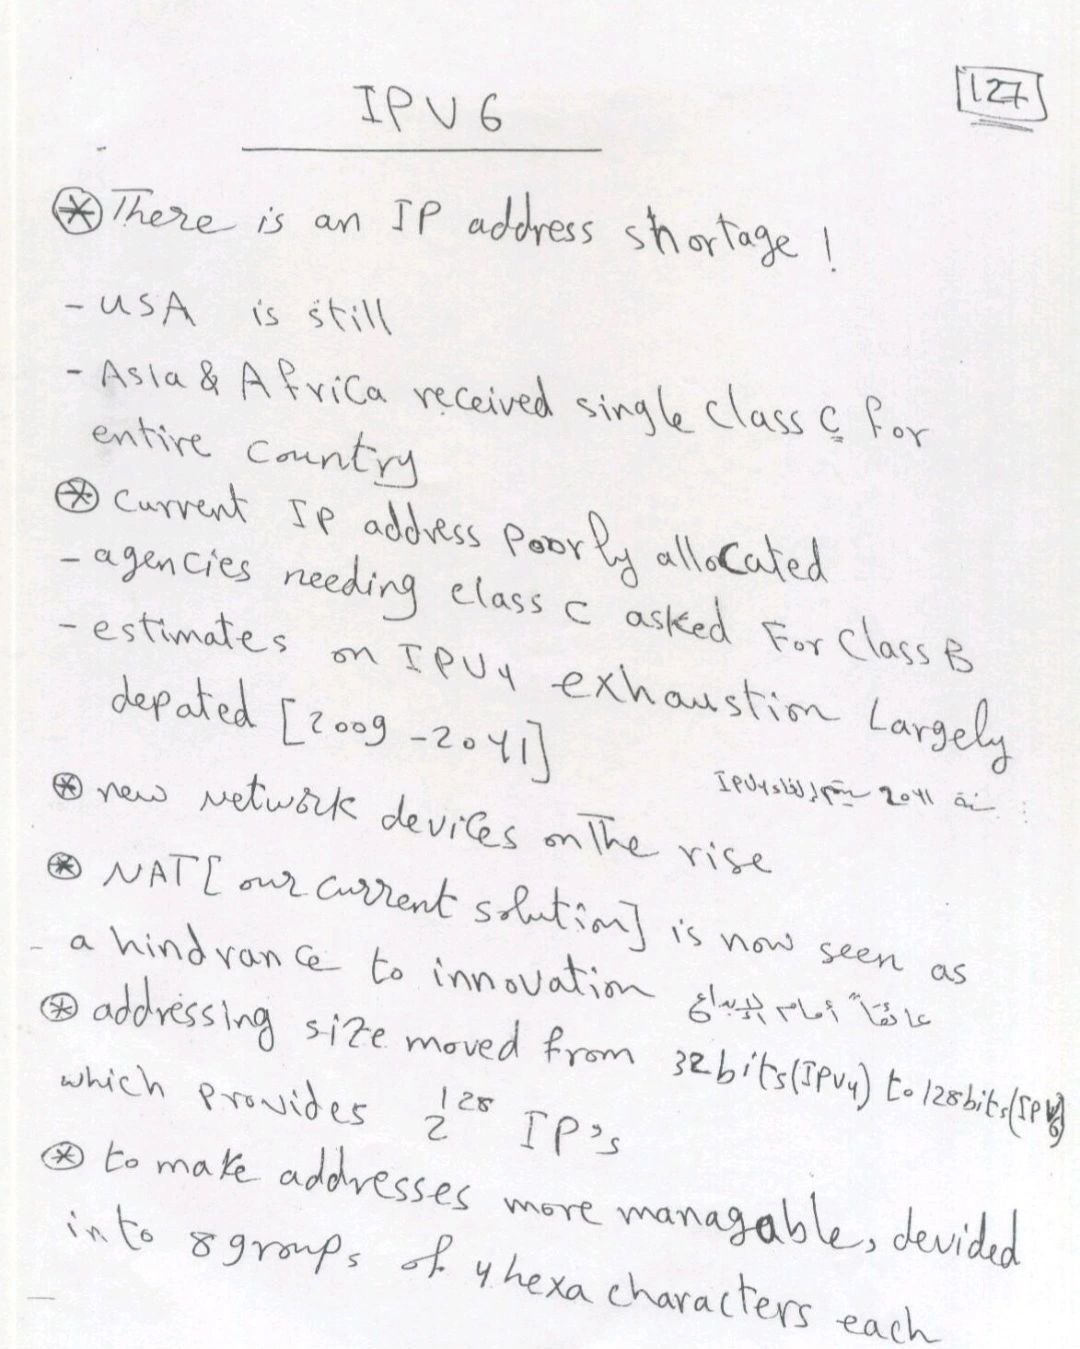 IPV6
127
⊛ There is an IP address shortage!
- USA is still
- Asia & Africa received single class C for
entire country
⊛ Current IP address poorly allocated
- agencies needing class C asked For Class B
- estimates on IPV4 exhaustion Largely
depated [2009-2041]
IPV4 2041
⊛ new network devices on The rise
⊛ NAT [our current solution] is now seen as
- a hindrance to innovation
عائقاً أمام الإبداع
⊛ addressing size moved from 32bits(IPV4) to 128bits(IPV6)
which provides 2^128 IP's
⊛ to make addresses more managable, devided
into 8 groups of 4 hexa characters each